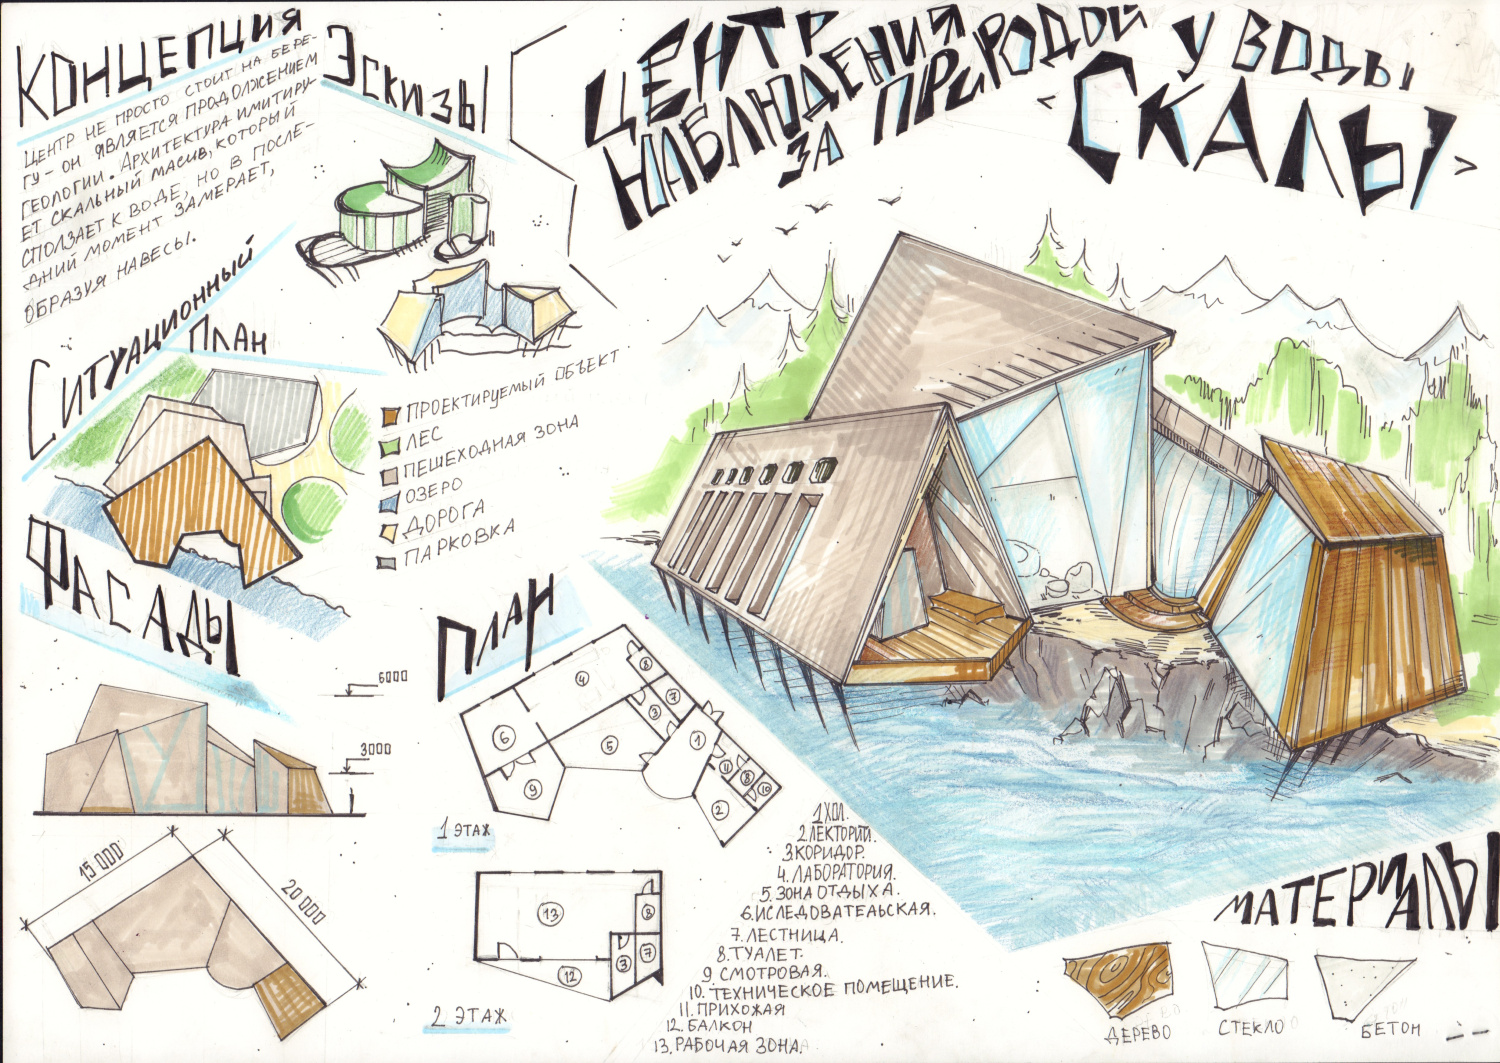 КОНЦЕПЦИЯ
ЦЕНТР НЕ ПРОСТО СТОИТ НА БЕРЕ-
ГУ - ОН ЯВЛЯЕТСЯ ПРОДОЛЖЕНИЕМ
ГЕОЛОГИИ. АРХИТЕКТУРА ИМИТИРУ-
ЕТ СКАЛЬНЫЙ МАСИВ, КОТОРЫЙ
СПОЛЗАЕТ К ВОДЕ, НО В ПОСЛЕ-
ДНИЙ МОМЕНТ ЗАМЕРАЕТ,
ОБРАЗУЯ НАВЕСЫ.
ЭСКИЗЫ
ЦЕНТР
НАБЛЮДЕНИЯ
ЗА ПРИРОДОЙ У ВОДЫ
"СКАЛЫ"
СИТУАЦИОННЫЙ
ПЛАН
ПРОЕКТИРУЕМЫЙ ОБЪЕКТ
ЛЕС
ПЕШЕХОДНАЯ ЗОНА
ОЗЕРО
ДОРОГА
ПАРКОВКА
ФАСАДЫ
6000
3000
15 000
20 000
ПЛАН
4
8
7
3
6
5
1
9
11
8
10
2
1 ЭТАЖ
13
8
3
7
12
2 ЭТАЖ
1 ХОЛ.
2 ЛЕКТОРИЙ.
3 КОРИДОР.
4. ЛАБОРАТОРИЯ.
5. ЗОНА ОТДЫХА.
6. ИСЛЕДОВАТЕЛЬСКАЯ.
7. ЛЕСТНИЦА.
8. ТУАЛЕТ.
9 СМОТРОВАЯ.
10. ТЕХНИЧЕСКОЕ ПОМЕЩЕНИЕ.
11. ПРИХОЖАЯ
12. БАЛКОН
13. РАБОЧАЯ ЗОНА.
МАТЕРИАЛЫ
ДЕРЕВО
СТЕКЛО
БЕТОН